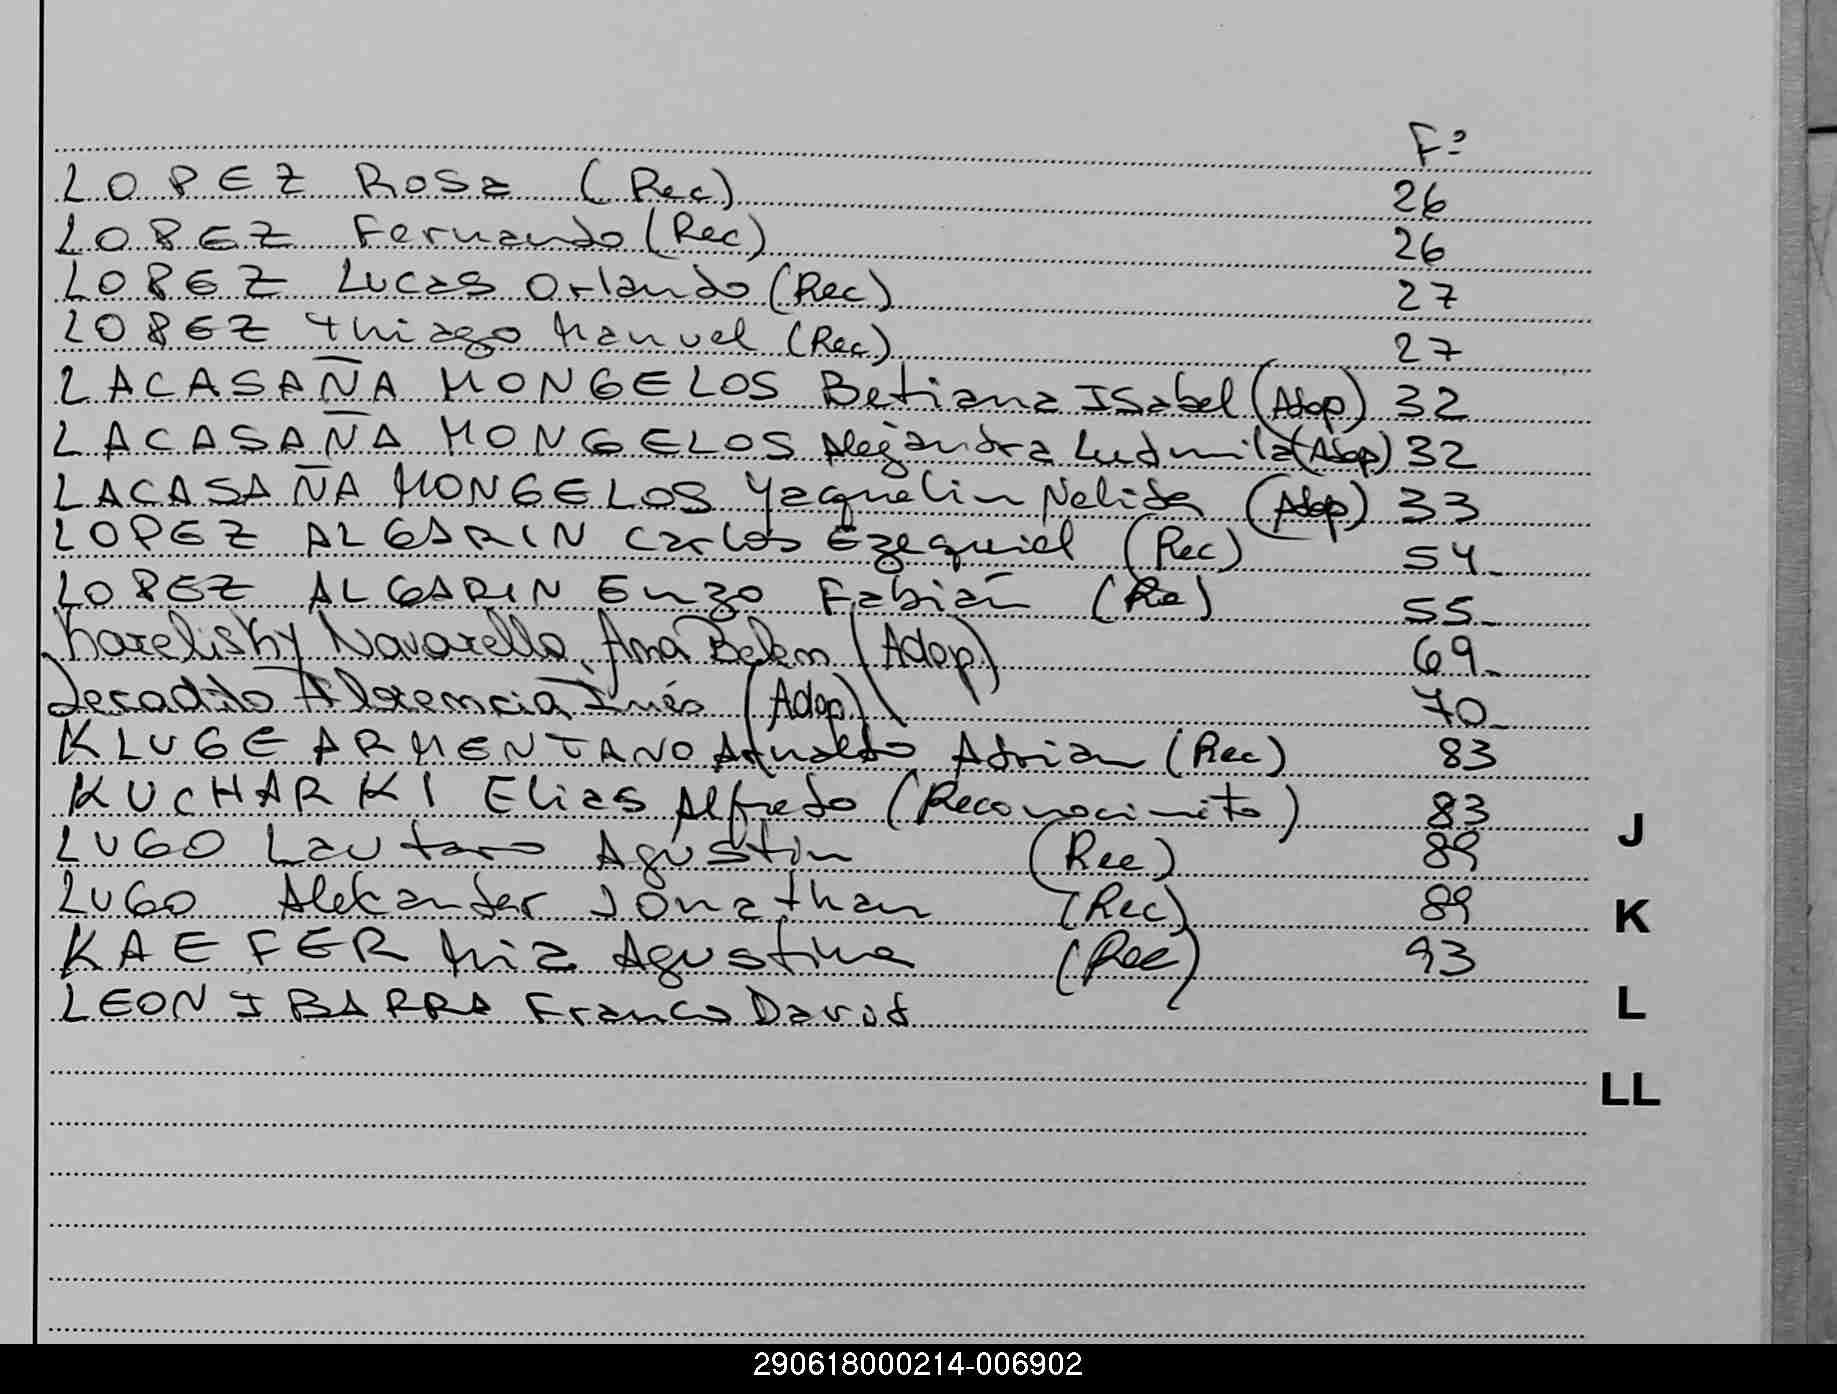 F:
LOPEZ Rosa (Rec) 26
LOPEZ Fernando (Rec) 26
LOPEZ Lucas Orlando (Rec) 27
LOPEZ Thiago Manuel (Rec) 27
LACASAÑA MONGELOS Betiana ISabel (Adop) 32
LACASAÑA MONGELOS Alejandra Ludmila (Adop) 32
LACASAÑA MONGELOS Yaquelin Nelida (Adop) 33
LOPEZ ALGARIN Carlos Ezequiel (Rec) 54-
LOPEZ ALGARIN Enzo Fabián (Re) 55-
Navarello, Ana Belen (Adop) 69-
Florencia Inés (Adop) 70-
KLUGE ARMENTANO Arnaldo Adrian (Rec) 83
KUCHARKI Elias Alfredo (Reconocimito) 83
J
LUGO Lautaro Agustin (Rec) 89
LUGO Alexander Jonathan (Rec) 89
K
KAEFER Mia Agustina (Rec) 93
LEON IBARRA Franco David
L
LL
290618000214-006902